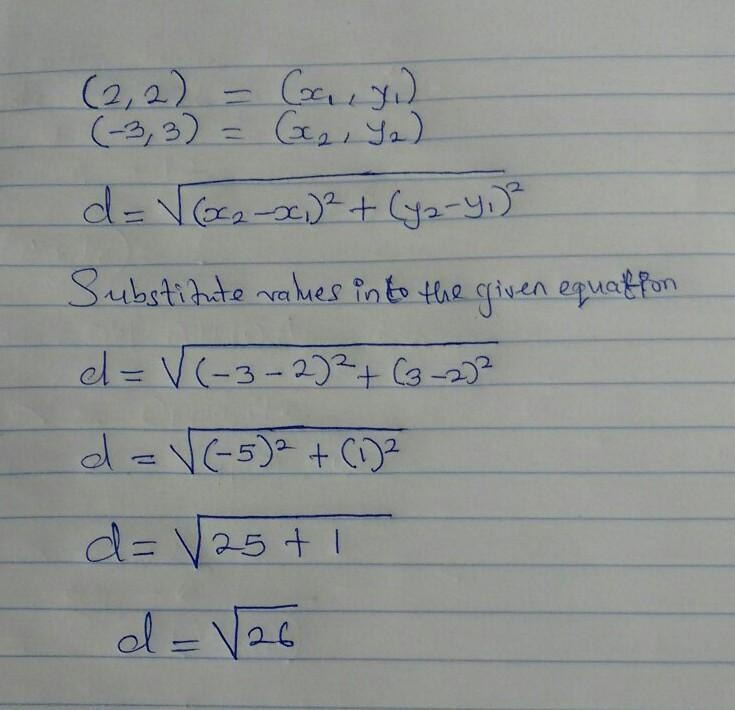 (2,2) = (x₁, y₁)
(-3,3) = (x₂, y₂)
d = √(x₂-x₁)² + (y₂-y₁)²
Substitute values into the given equation
d = √(-3-2)² + (3-2)²
d = √(-5)² + (1)²
d = √25 + 1
d = √26